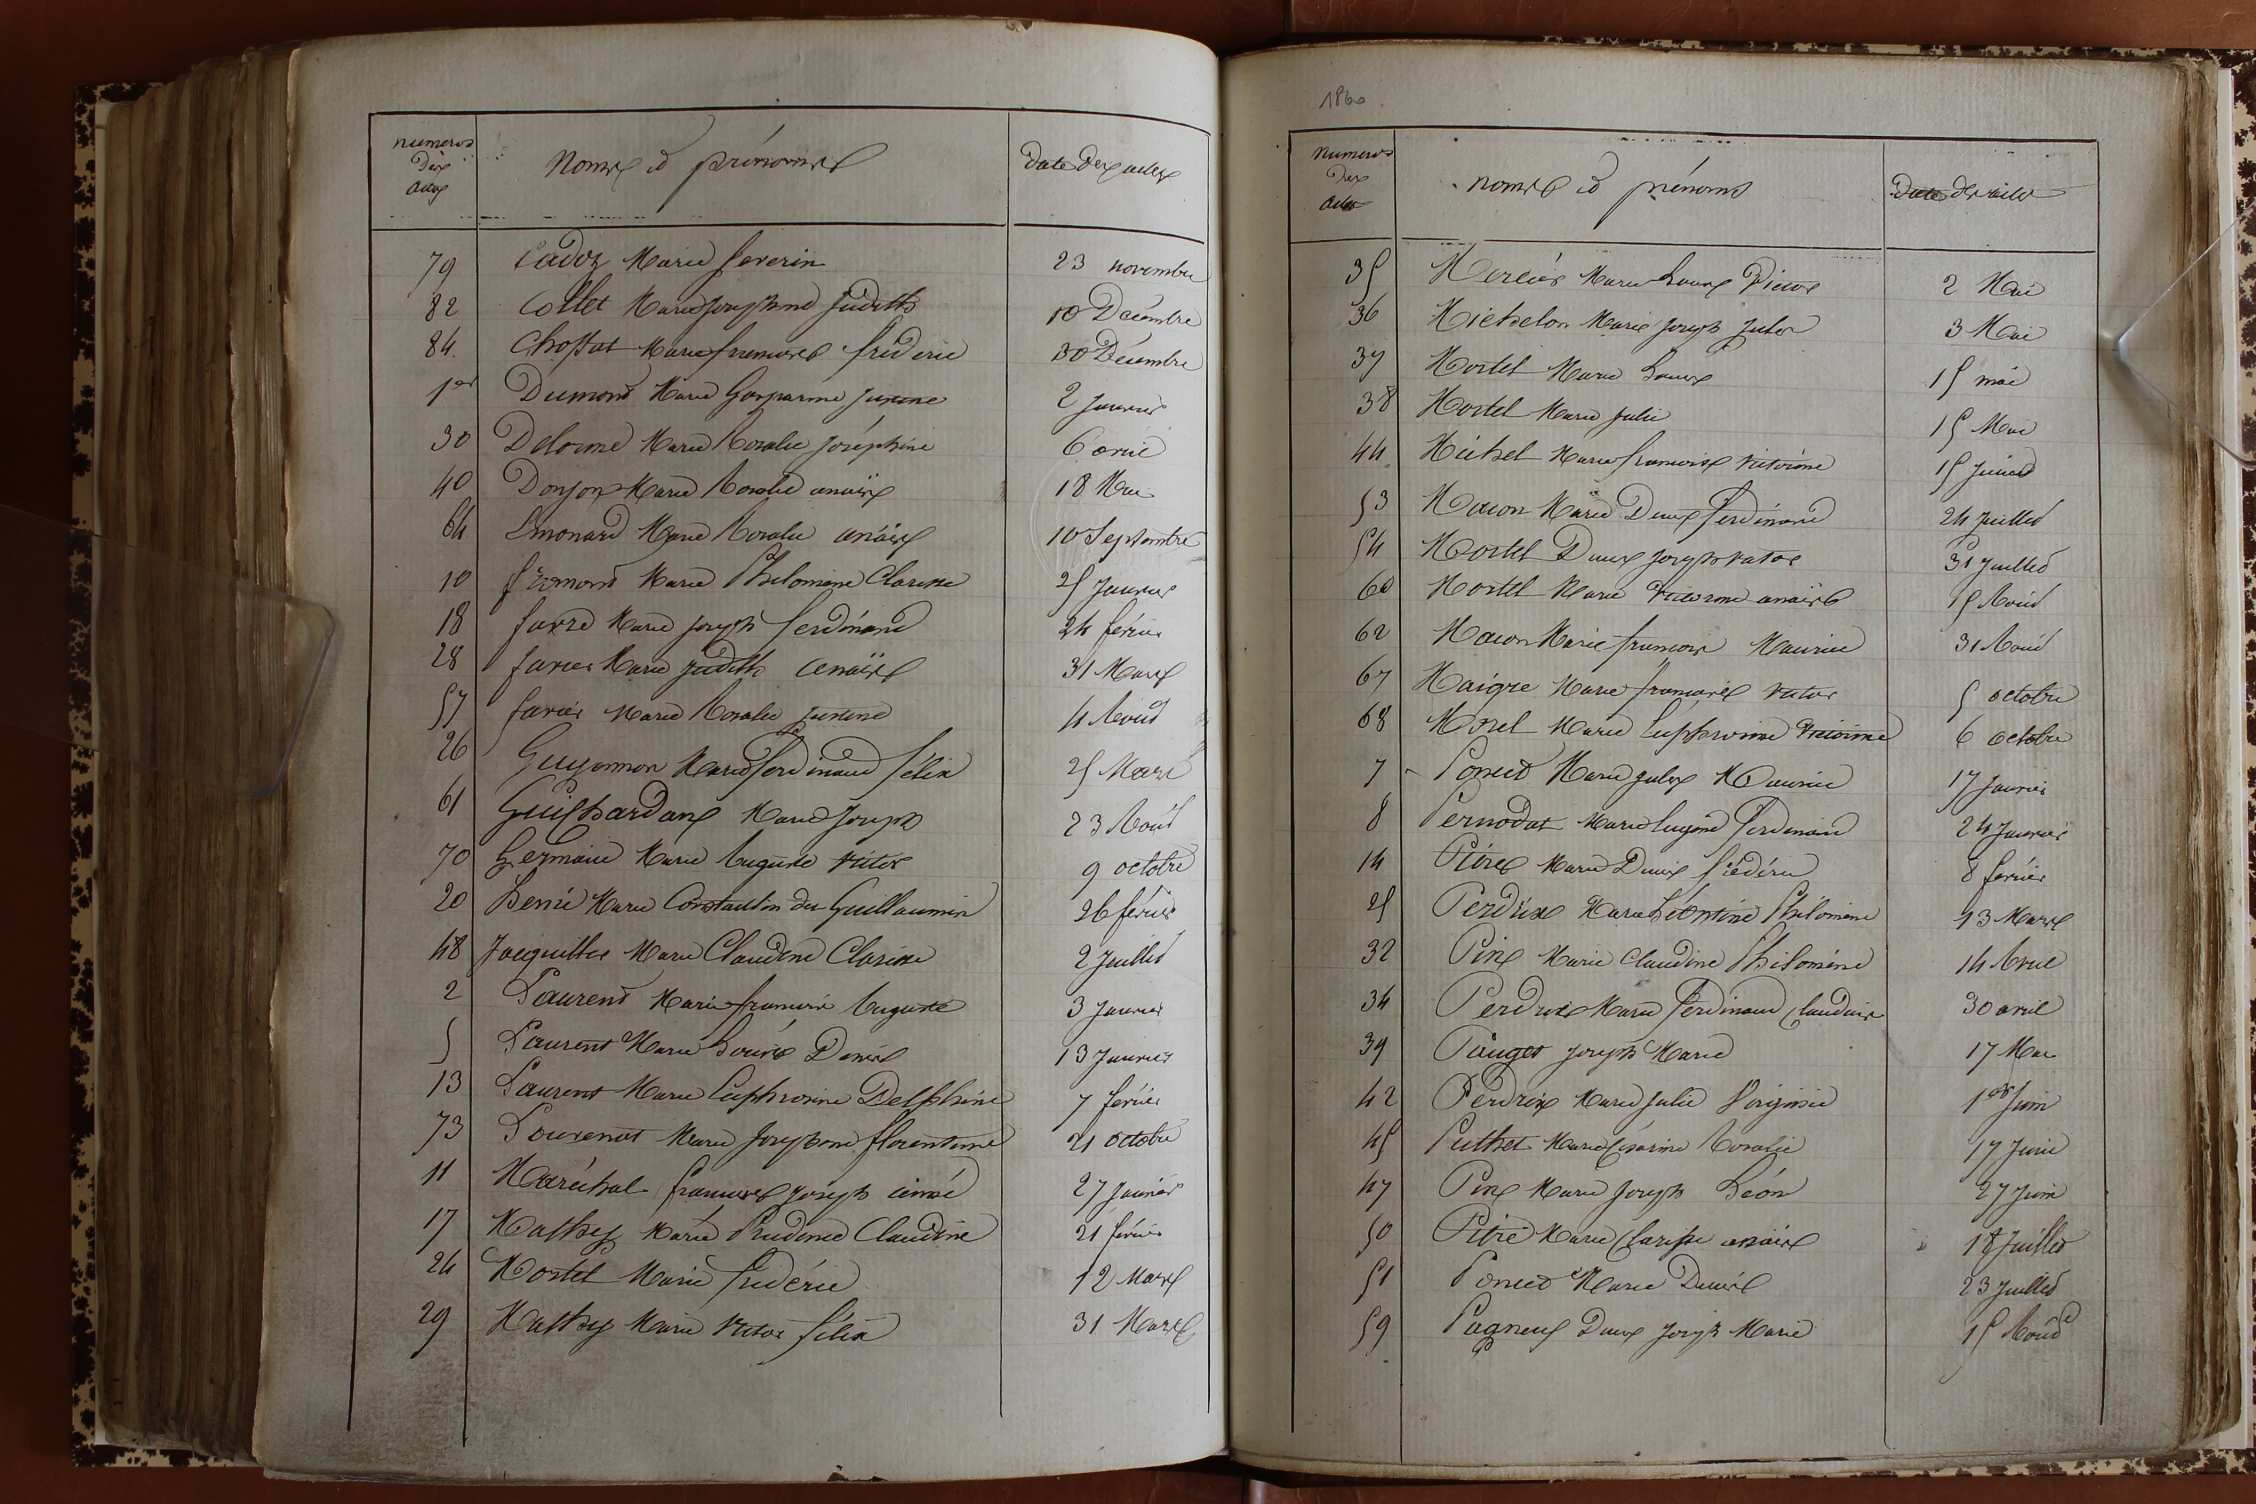 numeros
Des
actes
Noms et prénoms
Date des actes
79 Cadoz Marie Severin 23 novembre
82 Collet Marie Josephine Judith 10 Décembre
84 Chossat Marie françois fréderic 30 Décembre
1er Dumont Marie Gasparine Justine 2 Janvier
30 Delorme Marie Rosalie Joséphine 6 avril
40 Donjon Marie Rosalie anaïse 18 Mai
64 Emonard Marie Rosalie anaïse 10 Septembre
10 fromont Marie Philomène Clarisse 25 Janvier
18 favre Marie Joseph ferdinand 24 février
28 favier Marie Judith anaïse 31 Mars
57 favier Marie Rosalie Justine 4 Août
26 Guyonnon Marie ferdinand félix 25 Mars
61 Guichardans Marie Joseph 23 Août
70 Germain Marie Auguste victor 9 octobre
20 Henri Marie Constantin dit Guillaumin 26 février
48 Jacquillet Marie Claudine Clarisse 2 Juillet
2 Laurent Marie françois Auguste 3 Janvier
5 Laurent Marie Louise Denise 13 Janvier
13 Laurent Marie Euphrosine Delphine 7 février
73 Marie Josephine florentine 21 octobre
11 Maréchal françois Joseph aimé 27 Janvier
17 Mathey Marie Prudence Claudine 21 février
24 Mortel Marie fréderic 12 Mars
29 Mathey Marie victor félix 31 Mars
1860
numeros
des
actes
noms et prénoms
Date des actes
35 Mercier Marie Louis Pierre 2 Mai
36 Michelon Marie Joseph Jules 3 Mai
37 Mortel Marie Louis 15 mai
38 Mortel Marie Julie 15 Mai
44 Michel Marie françoise victorine 15 Juin
53 Macon Marie Denis ferdinand 24 Juillet
54 Mortel Denis Joseph victor 31 Juillet
60 Mortel Marie victorine anaïse 15 Août
62 Macon Marie françois Maurice 31 Août
67 Maigre Marie françois victor 5 octobre
68 Morel Marie Euphrosine victorine 6 octobre
7 Poncet Marie Jules Maurice 17 Janvier
8 Pernodat Marie Eugène ferdinand 24 Janvier
14 Pitre Marie Denis frédéric 8 février
25 Perdrix Marie Léontine Philomène 13 Mars
32 Pin Marie Claudine Philomène 14 Avril
34 Perdrix Marie ferdinand Claudius 30 avril
39 Pauget Joseph Marie 17 Mai
42 Perdrix Marie Julie Virginie 1er Juin
45 Puthet Marie Césarine Rosalie 17 Juin
47 Pin Marie Joseph Léon 27 Juin
50 Pitre Marie Clarisse anaïse 18 Juillet
51 Poncet Marie Denise 23 Juillet
59 Pagneux Denis Joseph Marie 15 Août